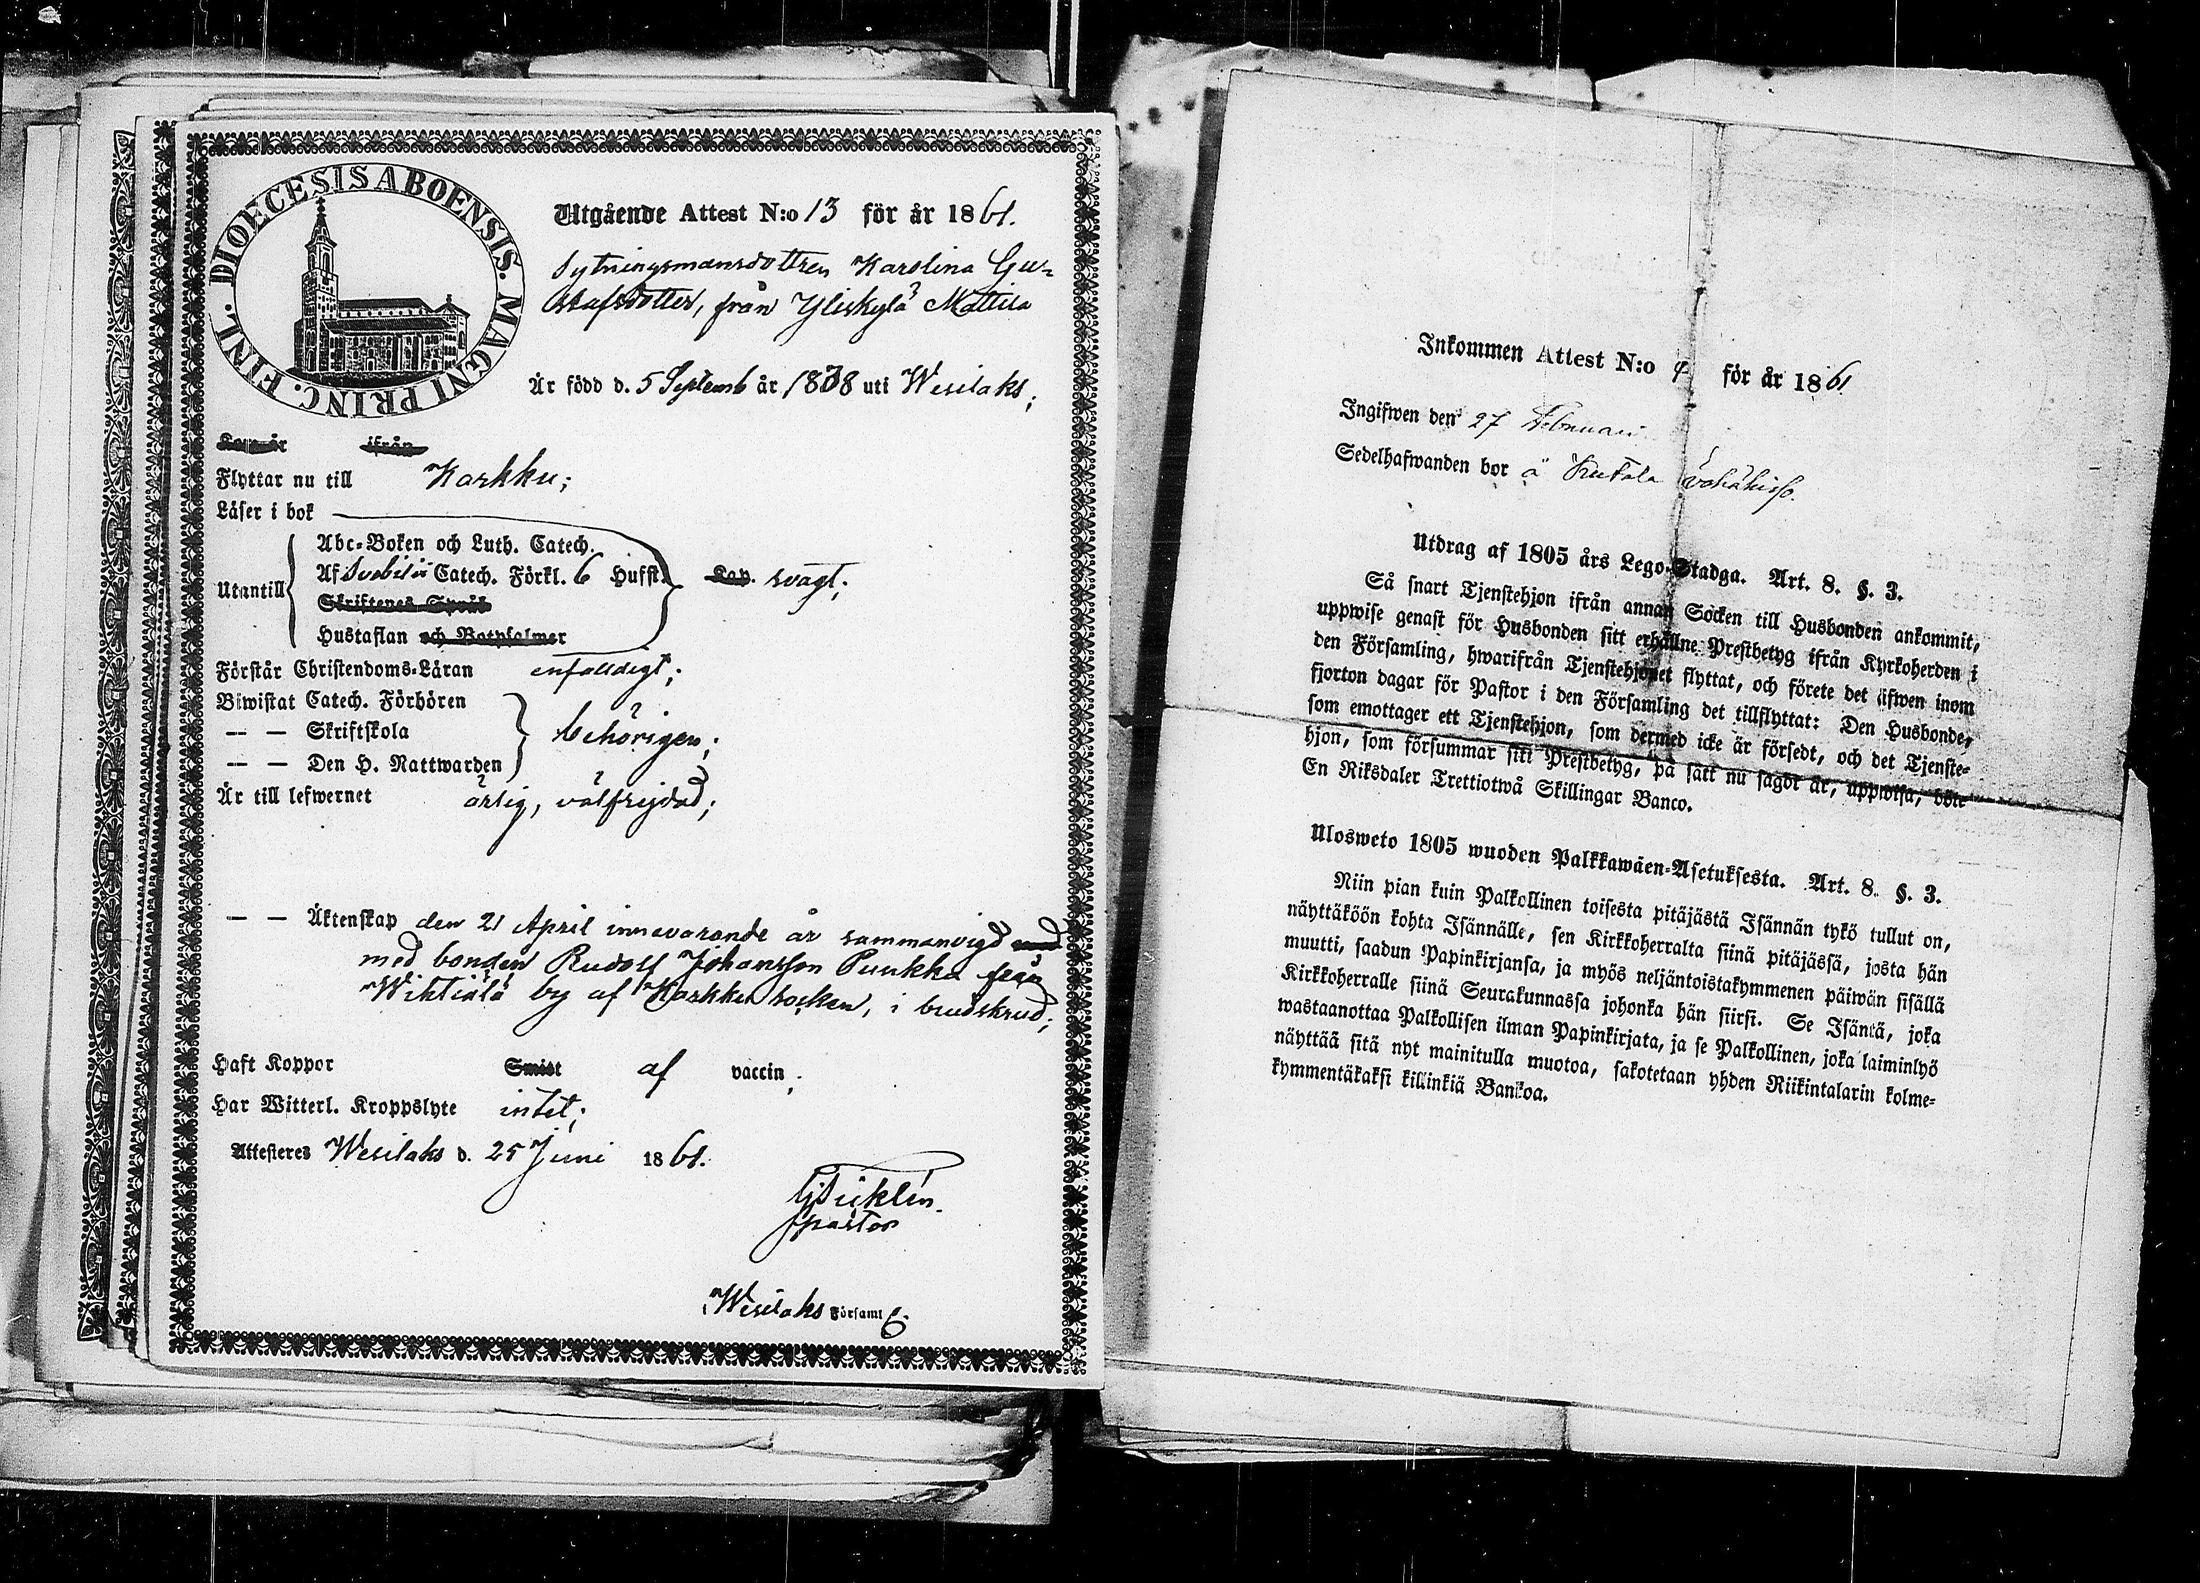 DIOECESIS ABOENSIS. MAGNI PRINC. FINL.
Utgående Attest N:o 13 för år 1861.
Sytningsmansdottren Karolina Gu-
stafsdotter, från Yliskylä Mattila
Är född d. 5 Septemb år 1838 uti Wesilaks;
Kom år ifrån
Flyttar nu till Karkku;
Läser i bok
Abc-Boken och Luth. Catech.
Utantill Af Svebilii Catech. Förkl. 6 Hufst. Kap. svagt;
Skriftenes Språk
Hustaflan och Botpsalmer
Förstår Christendoms-Läran enfalldigt;
Biwistat Catech. Förhören
— — Skriftskola behörigen;
— — Den H. Nattwarden
Är till lefwernet ärlig, välfrejdad;
— — Äktenskap den 21 April innevarande år sammanvigd med
med bonden Rudolf Johansson Punkka från
Wihtiälä by af Karkku socken, i brudskrud;
Haft Koppor Smitt af vaccin;
Har Witterl. Kroppslyte intet;
Attesteres Wesilaks d. 25 Juni 1861.
pastor
Wesilaks Församl
Inkommen Attest N:o 4 för år 1861.
Ingifwen den 27 Februari
Sedelhafwanden bor å
Utdrag af 1805 års Lego-Stadga. Art. 8. §. 3.
Så snart Tjenstehjon ifrån annan Socken till Husbonden ankommit,
uppwise genast för Husbonden sitt erhållne Prestbetyg ifrån Kyrkoherden i
den Församling, hwarifrån Tjenstehjonet flyttat, och förete det äfwen inom
fjorton dagar för Pastor i den Församling det tillflyttat: Den Husbonde,
som emottager ett Tjenstehjon, som dermed icke är försedt, och det Tjenste-
hjon, som försummar sitt Prestbetyg, på sätt nu sagdt är, uppwisa, böte
En Riksdaler Trettiotwå Skillingar Banco.
Ulosweto 1805 wuoden Palkkawäen-Asetuksesta. Art. 8. §. 3.
Niin pian kuin Palkollinen toisesta pitäjästä Isännän tykö tullut on,
näyttäköön kohta Isännälle, sen Kirkkoherralta siinä pitäjässä, josta hän
muutti, saadun Papinkirjansa, ja myös neljäntoistakymmenen päiwän sisällä
Kirkkoherralle siinä Seurakunnassa johonka hän siirsi. Se Isäntä, joka
wastaanottaa Palkollisen ilman Papinkirjata, ja se Palkollinen, joka laiminlyö
näyttää sitä nyt mainitulla muotoa, sakotetaan yhden Riikintalarin kolme-
kymmentäkaksi killinkiä Bankoa.